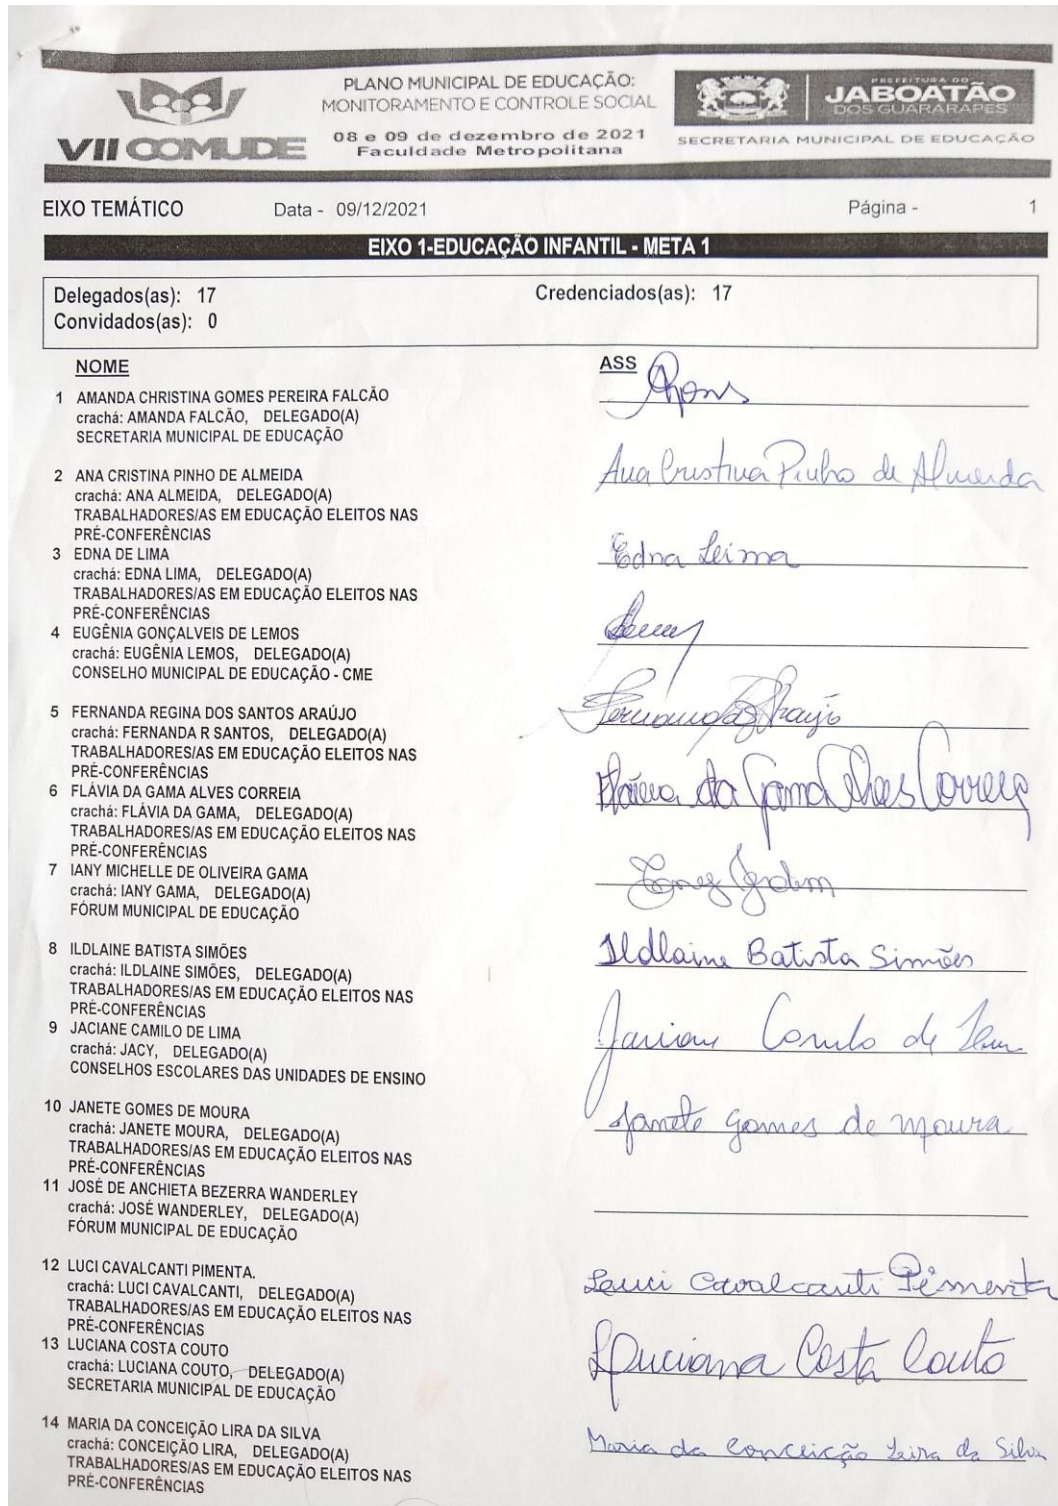 VII COMUDE
PLANO MUNICIPAL DE EDUCAÇÃO:
MONITORAMENTO E CONTROLE SOCIAL
08 e 09 de dezembro de 2021
Faculdade Metropolitana
PREFEITURA DO
JABOATÃO
DOS GUARARAPES
SECRETARIA MUNICIPAL DE EDUCAÇÃO
EIXO TEMÁTICO Data - 09/12/2021 Página - 1
EIXO 1-EDUCAÇÃO INFANTIL - META 1
Delegados(as): 17 Credenciados(as): 17
Convidados(as): 0
NOME ASS
1 AMANDA CHRISTINA GOMES PEREIRA FALCÃO
crachá: AMANDA FALCÃO, DELEGADO(A)
SECRETARIA MUNICIPAL DE EDUCAÇÃO
2 ANA CRISTINA PINHO DE ALMEIDA Ana Cristina Pinho de Almeida
crachá: ANA ALMEIDA, DELEGADO(A)
TRABALHADORES/AS EM EDUCAÇÃO ELEITOS NAS
PRÉ-CONFERÊNCIAS
3 EDNA DE LIMA Edna Leima
crachá: EDNA LIMA, DELEGADO(A)
TRABALHADORES/AS EM EDUCAÇÃO ELEITOS NAS
PRÉ-CONFERÊNCIAS
4 EUGÊNIA GONÇALVEIS DE LEMOS
crachá: EUGÊNIA LEMOS, DELEGADO(A)
CONSELHO MUNICIPAL DE EDUCAÇÃO - CME
5 FERNANDA REGINA DOS SANTOS ARAÚJO
crachá: FERNANDA R SANTOS, DELEGADO(A)
TRABALHADORES/AS EM EDUCAÇÃO ELEITOS NAS
PRÉ-CONFERÊNCIAS
6 FLÁVIA DA GAMA ALVES CORREIA Flávia da Gama Alves Correia
crachá: FLÁVIA DA GAMA, DELEGADO(A)
TRABALHADORES/AS EM EDUCAÇÃO ELEITOS NAS
PRÉ-CONFERÊNCIAS
7 IANY MICHELLE DE OLIVEIRA GAMA
crachá: IANY GAMA, DELEGADO(A)
FÓRUM MUNICIPAL DE EDUCAÇÃO
8 ILDLAINE BATISTA SIMÕES Ildlaine Batista Simões
crachá: ILDLAINE SIMÕES, DELEGADO(A)
TRABALHADORES/AS EM EDUCAÇÃO ELEITOS NAS
PRÉ-CONFERÊNCIAS
9 JACIANE CAMILO DE LIMA Jaciane Camilo de Lima
crachá: JACY, DELEGADO(A)
CONSELHOS ESCOLARES DAS UNIDADES DE ENSINO
10 JANETE GOMES DE MOURA Janete Gomes de Moura
crachá: JANETE MOURA, DELEGADO(A)
TRABALHADORES/AS EM EDUCAÇÃO ELEITOS NAS
PRÉ-CONFERÊNCIAS
11 JOSÉ DE ANCHIETA BEZERRA WANDERLEY
crachá: JOSÉ WANDERLEY, DELEGADO(A)
FÓRUM MUNICIPAL DE EDUCAÇÃO
12 LUCI CAVALCANTI PIMENTA. Luci Cavalcanti Pimenta
crachá: LUCI CAVALCANTI, DELEGADO(A)
TRABALHADORES/AS EM EDUCAÇÃO ELEITOS NAS
PRÉ-CONFERÊNCIAS
13 LUCIANA COSTA COUTO Luciana Costa Couto
crachá: LUCIANA COUTO, DELEGADO(A)
SECRETARIA MUNICIPAL DE EDUCAÇÃO
14 MARIA DA CONCEIÇÃO LIRA DA SILVA Maria da Conceição Leira da Silva
crachá: CONCEIÇÃO LIRA, DELEGADO(A)
TRABALHADORES/AS EM EDUCAÇÃO ELEITOS NAS
PRÉ-CONFERÊNCIAS